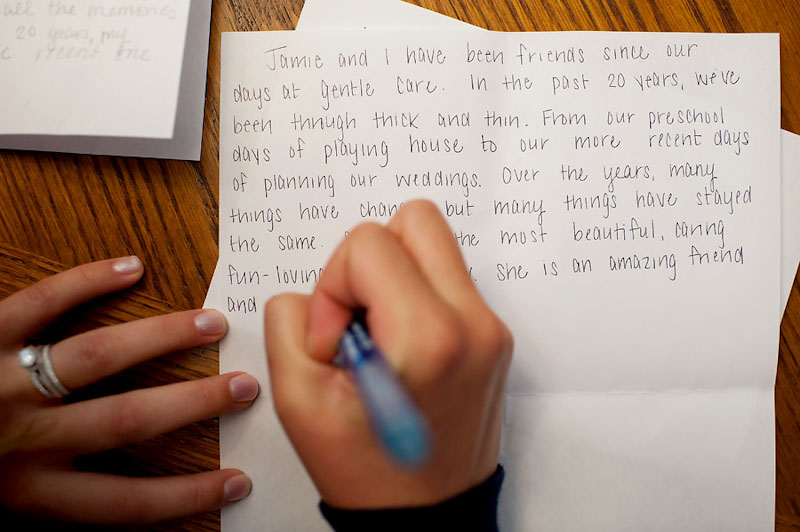 all the memories
20 years, my
recent one.
Jamie and I have been friends since our
days at Gentle Care. In the past 20 years, we've
been through thick and thin. From our preschool
days of playing house to our more recent days
of planning our weddings. Over the years, many
things have but many things have stayed
the same. the most beautiful, caring
fun-loving she is an amazing friend
and